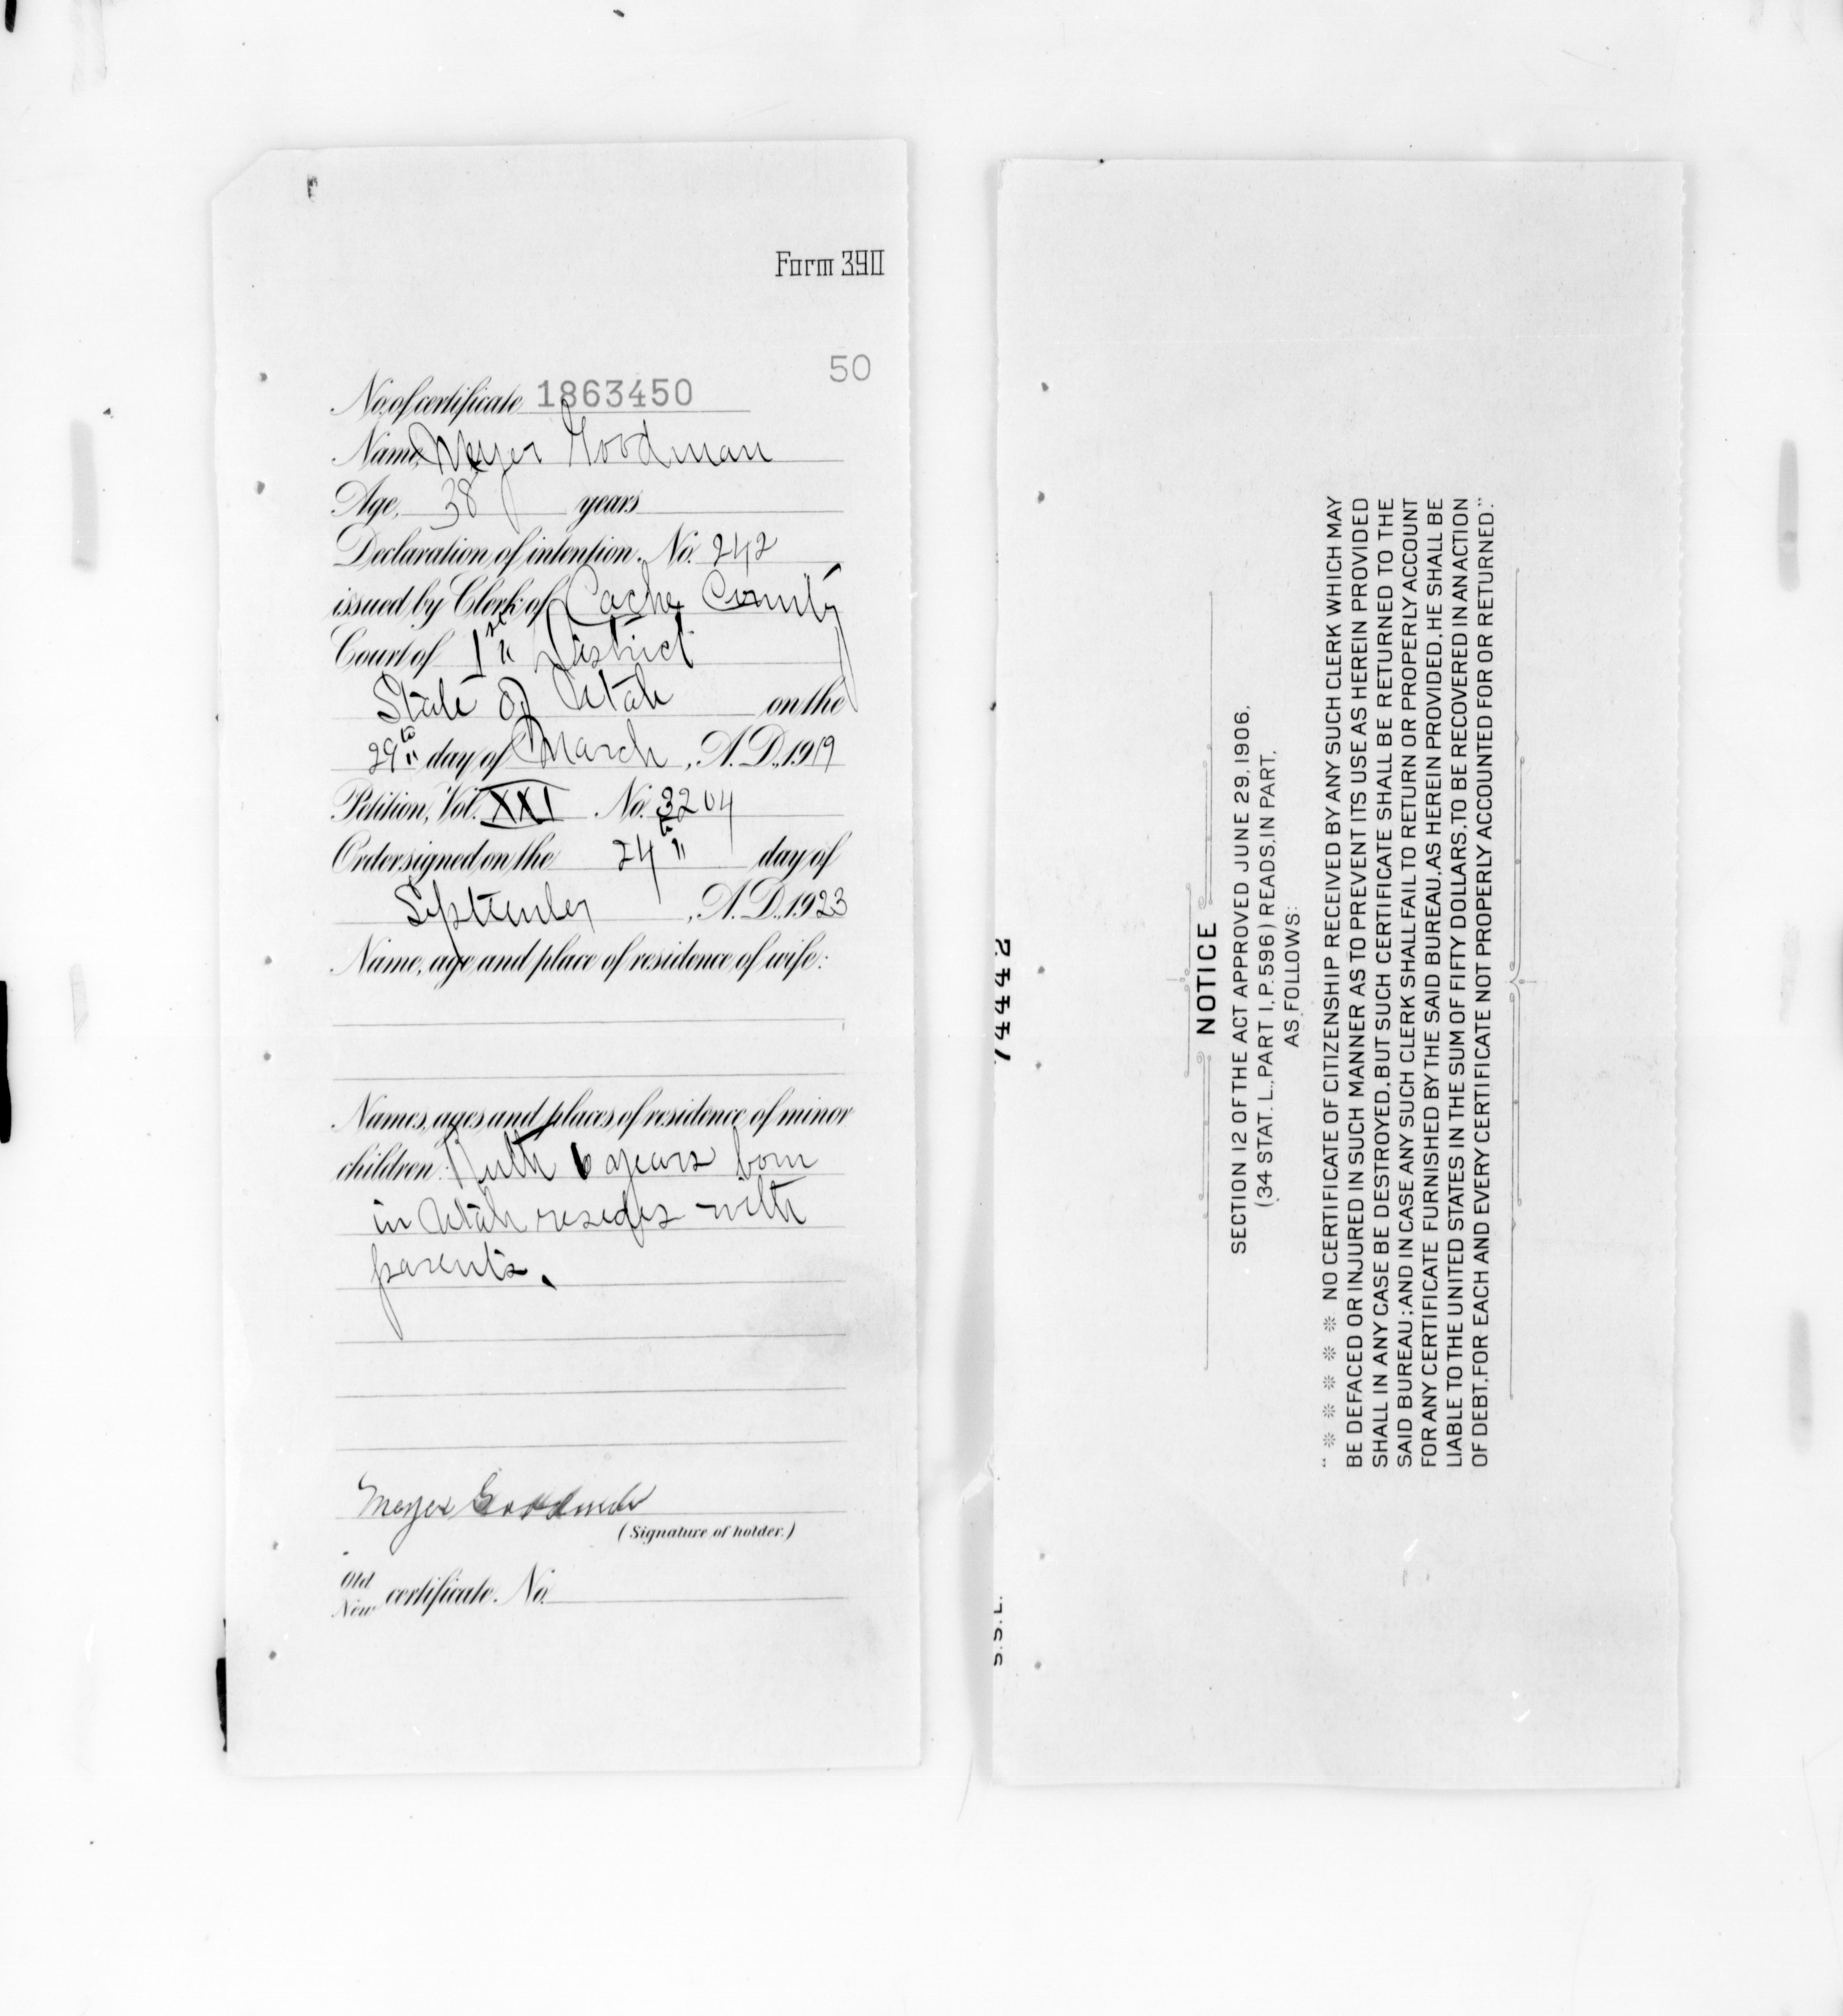 Form 390
50
No. of certificate 1863450
Name, Meyer Goodman
Age, 38 years
Declaration of intention. No. 242
issued by Clerk of Cache County
Court of 1st District
State of Utah on the
29th day of March, A. D., 1919
Petition, Vol. XXI No. 3204
Order signed on the 24th day of
September, A. D., 1923
Name, age and place of residence of wife:
Names, ages and places of residence of minor
children: Ruth 6 years born
in Utah resides with
parents.
Meyer Goodman
(Signature of holder.)
Old
New certificate. No.
74442
S.S.L.
NOTICE
SECTION 12 OF THE ACT APPROVED JUNE 29, 1906,
(34 STAT. L., PART I, P. 596) READS, IN PART,
AS FOLLOWS:
“ * * * * * NO CERTIFICATE OF CITIZENSHIP RECEIVED BY ANY SUCH CLERK WHICH MAY
BE DEFACED OR INJURED IN SUCH MANNER AS TO PREVENT ITS USE AS HEREIN PROVIDED
SHALL IN ANY CASE BE DESTROYED, BUT SUCH CERTIFICATE SHALL BE RETURNED TO THE
SAID BUREAU; AND IN CASE ANY SUCH CLERK SHALL FAIL TO RETURN OR PROPERLY ACCOUNT
FOR ANY CERTIFICATE FURNISHED BY THE SAID BUREAU, AS HEREIN PROVIDED, HE SHALL BE
LIABLE TO THE UNITED STATES IN THE SUM OF FIFTY DOLLARS, TO BE RECOVERED IN AN ACTION
OF DEBT, FOR EACH AND EVERY CERTIFICATE NOT PROPERLY ACCOUNTED FOR OR RETURNED.”